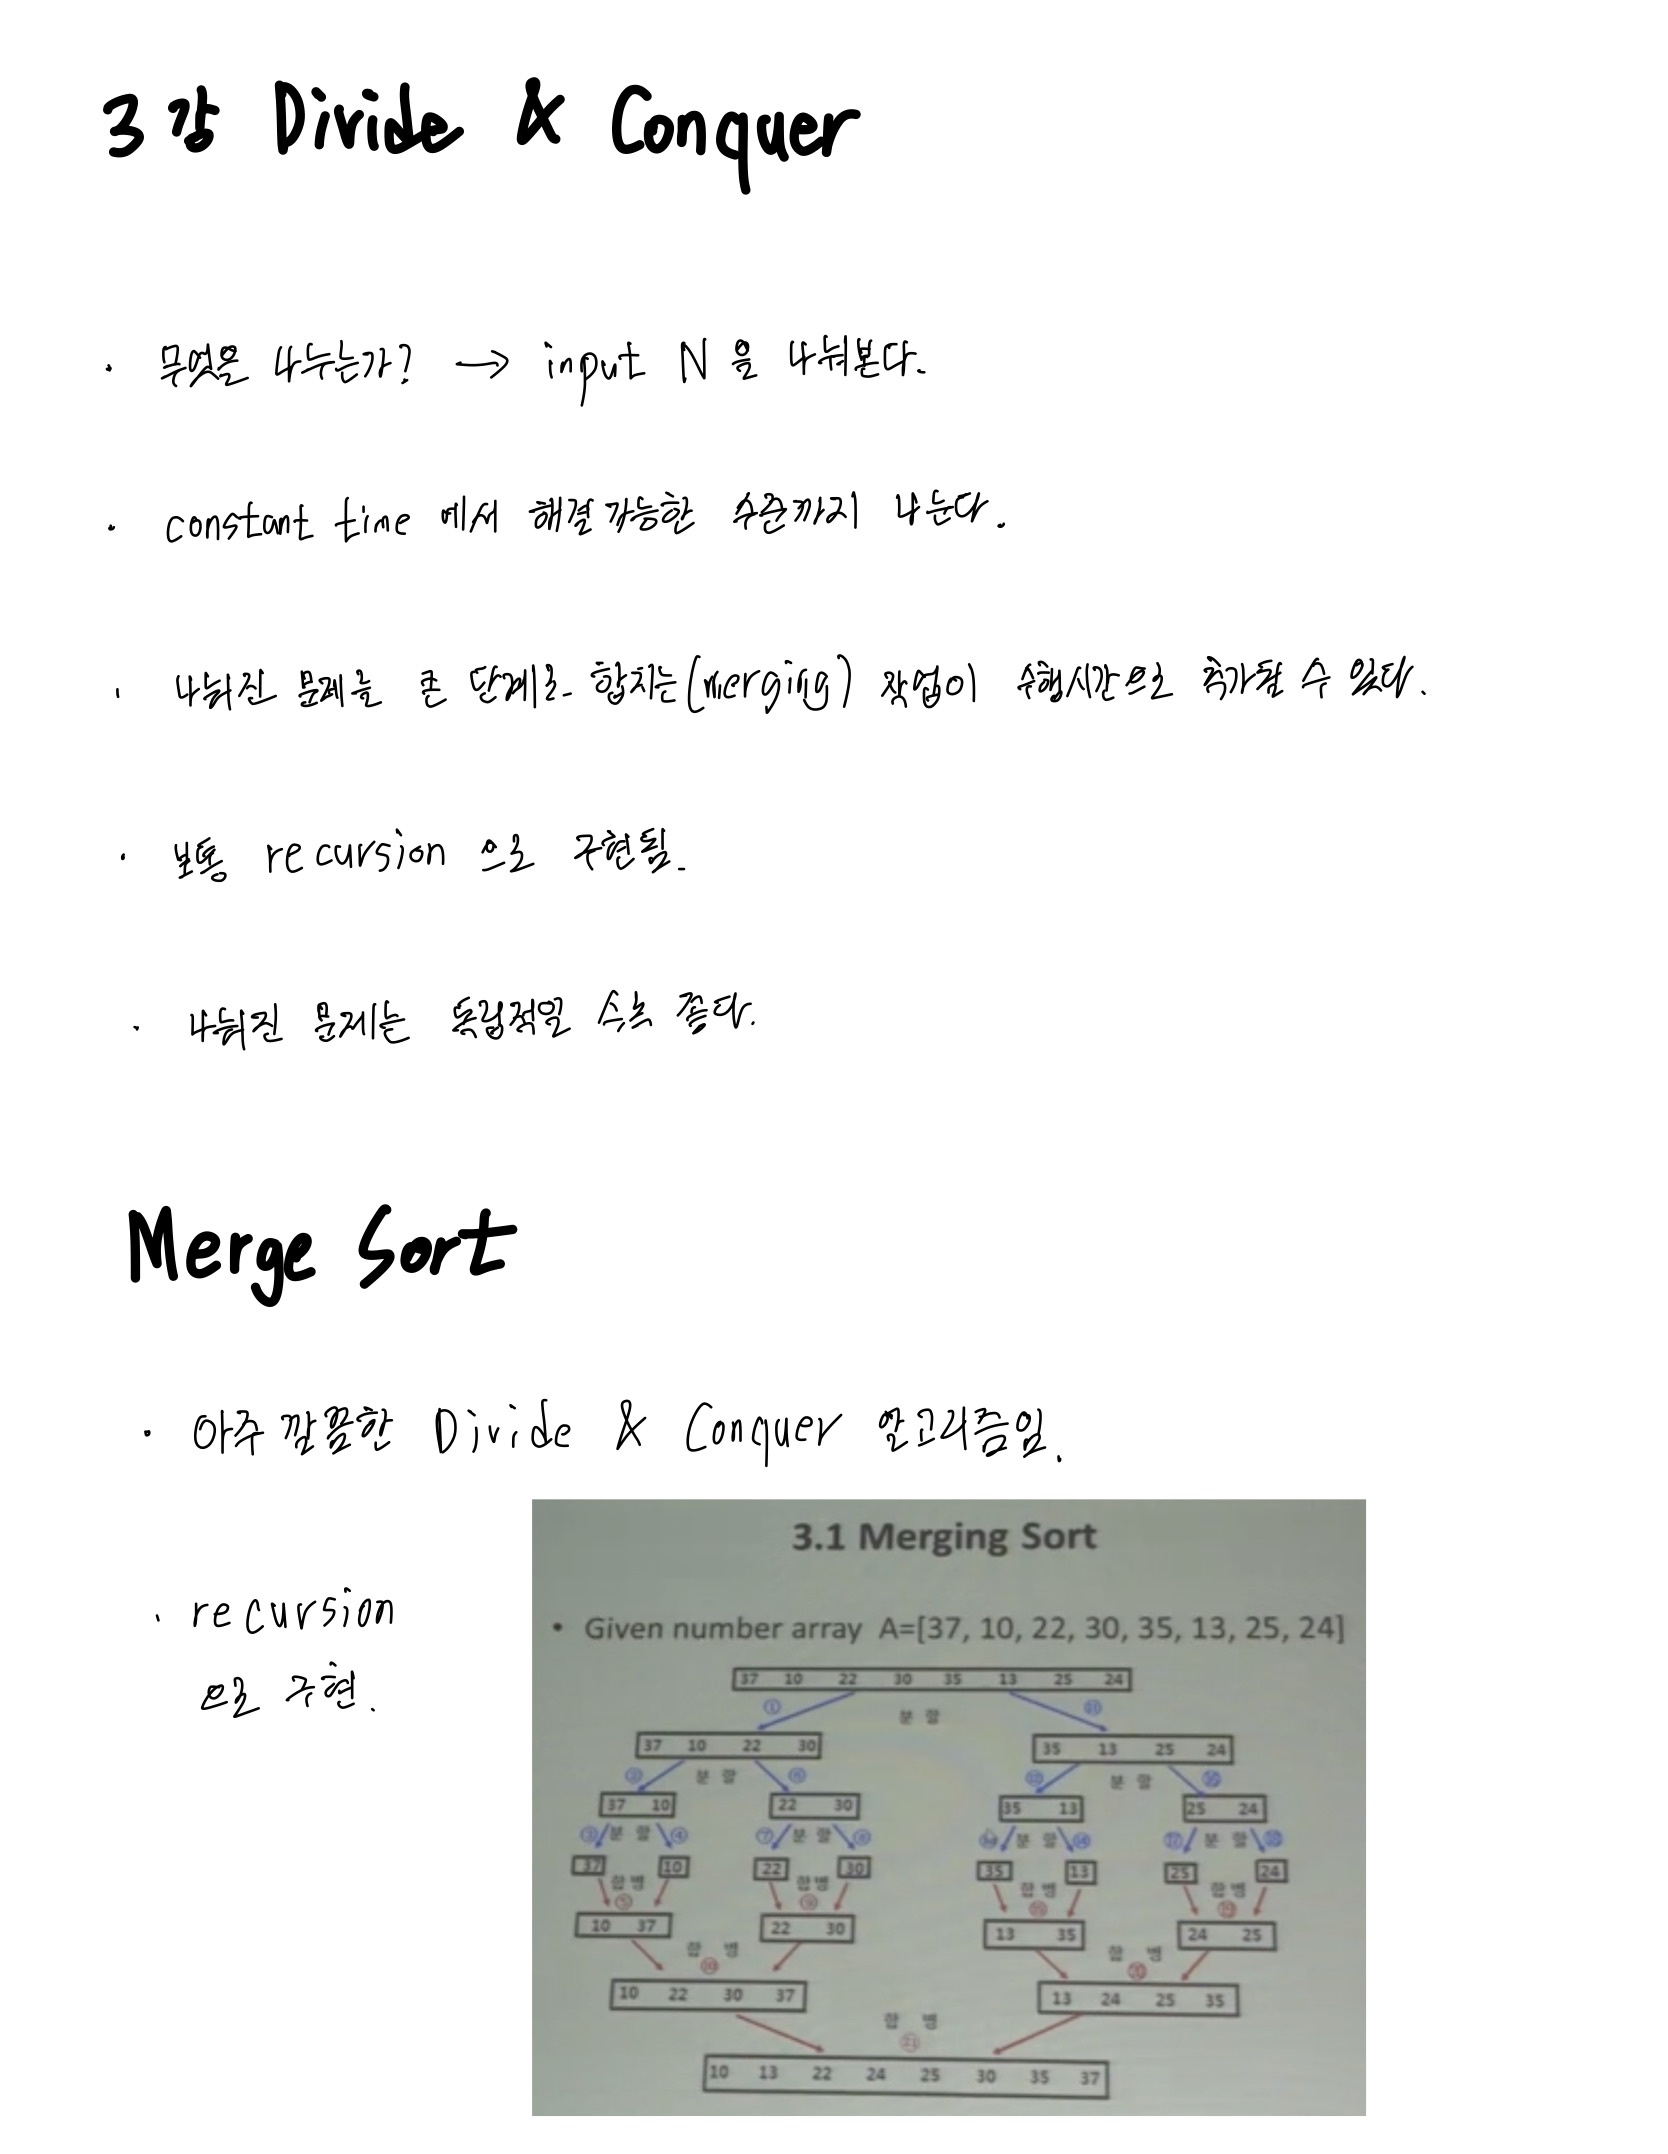 3강 Divide & Conquer
· 무엇을 나누는가? → input N을 나눠본다.
· constant time 에서 해결 가능한 수준까지 나눈다.
· 나눠진 문제를 큰 단계로 합치는(merging) 작업이 수행시간으로 추가될 수 있다.
· 보통 recursion 으로 구현됨.
· 나눠진 문제는 독립적일 수록 좋다.
Merge Sort
· 아주 깔끔한 Divide & Conquer 알고리즘임.
· recursion
으로 구현.
3.1 Merging Sort
• Given number array A=[37, 10, 22, 30, 35, 13, 25, 24]
37 10 22 30 35 13 25 24
① 분 할 ⑪
37 10 22 30 35 13 25 24
② 분 할 ⑥ ⑫ 분 할 ⑯
37 10 22 30 35 13 25 24
③ 분 할 ④ ⑦ 분 할 ⑧ 분 할 ⑭ ⑰ 분 할 ⑱
37 10 22 30 35 13 25 24
합병 합병 합병 합병
⑤ ⑨ ⑮ ⑲
10 37 22 30 13 35 24 25
합 병 합 병
⑩ ⑳
10 22 30 37 13 24 25 35
합 병
㉑
10 13 22 24 25 30 35 37